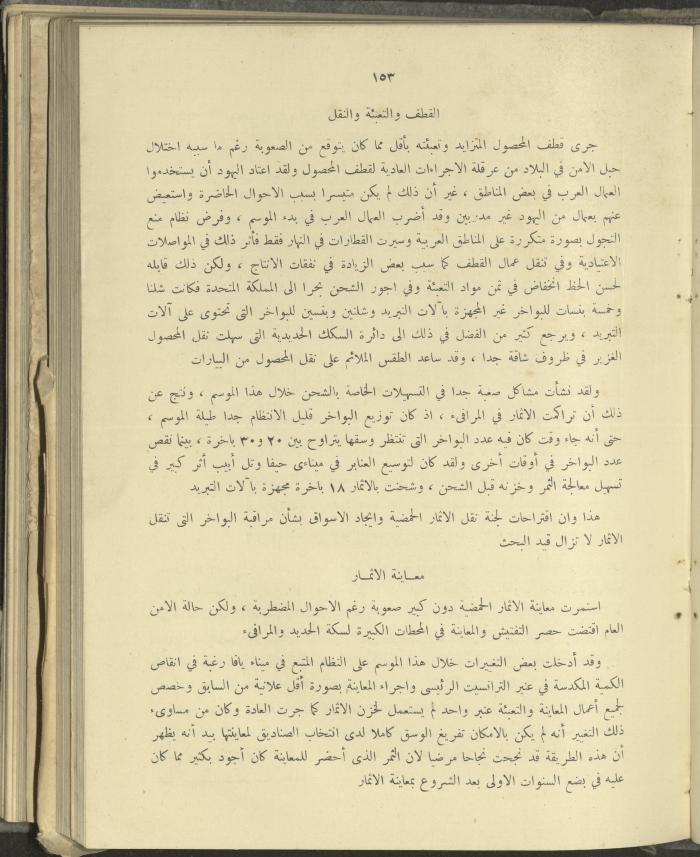 ١٥٣
القطف والتعبئة والنقل
جرى قطف المحصول المتزايد وتعبئته بأقل مما كان يتوقع من الصعوبة رغم ما سببه اختلال
حبل الامن في البلاد من عرقلة الاجراءات العادية لقطف المحصول ولقد اعتاد اليهود أن يستخدموا
العمال العرب في بعض المناطق ، غير أن ذلك لم يكن متيسرا بسبب الاحوال الحاضرة واستعيض
عنهم بعمال من اليهود غير مدربين وقد أضرب العمال العرب في بدء الموسم ، وفرض نظام منع
التجول بصورة متكررة على المناطق العربية وسيرت القطارات في النهار فقط فأثر ذلك في المواصلات
الاعتيادية وفي تنقل عمال القطف كما سبب بعض الزيادة في نفقات الانتاج ، ولكن ذلك قابله
لحسن الحظ انخفاض في ثمن مواد التعبئة وفي اجور الشحن بحرا الى المملكة المتحدة فكانت شلنا
وخمسة بنسات للبواخر غير المجهزة بآلات التبريد وشلنين وبنسين للبواخر التى تحتوى على آلات
التبريد ، ويرجع كثير من الفضل في ذلك الى دائرة السكك الحديدية التى سهلت نقل المحصول
الغزير في ظروف شاقة جدا ، وقد ساعد الطقس الملائم على نقل المحصول من البيارات
ولقد نشأت مشاكل صعبة جدا في التسهيلات الخاصة بالشحن خلال هذا الموسم ، ونتج عن
ذلك أن تراكمت الاثمار في المرافىء ، اذ كان توزيع البواخر قليل الانتظام جدا طيلة الموسم ،
حتى أنه جاء وقت كان فيه عدد البواخر التى تنتظر وسقها يتراوح بين ٢٠ و٣٠ باخرة ، بينما نقص
عدد البواخر في أوقات أخرى ولقد كان لتوسيع العنابر في ميناءى حيفا وتل أبيب أثر كبير في
تسهيل معالجة الثمر وخزنه قبل الشحن ، وشحنت بالاثمار ١٨ باخرة مجهزة بآلات التبريد
هذا وان اقتراحات لجنة نقل الاثمار الحمضية وايجاد الاسواق بشأن مراقبة البواخر التى تنقل
الاثمار لا تزال قيد البحث
معـاينة الاثمـار
استمرت معاينة الاثمار الحمضية دون كبير صعوبة رغم الاحوال المضطربة ، ولكن حالة الامن
العام اقتضت حصر التفتيش والمعاينة في المحطات الكبيرة لسكة الحديد والمرافىء
وقد أدخلت بعض التغيرات خلال هذا الموسم على النظام المتبع في ميناء يافا رغبة في انقاص
الكمية المكدسة في عنبر الترانسيت الرئيسى واجراء المعاينة بصورة أقل علانية من السابق وخصص
لجميع أعمال المعاينة والتعبئة عنبر واحد لم يستعمل لخزن الاثمار كما جرت العادة وكان من مساوىء
ذلك التغيير أنه لم يكن بالامكان تفريغ الوسق كاملا لدى انتخاب الصناديق لمعاينتها بيد أنه يظهر
أن هذه الطريقة قد نجحت نجاحا مرضيا لان الثمر الذى أحضر للمعاينة كان أجود بكثير مما كان
عليه في بضع السنوات الاولى بعد الشروع بمعاينة الاثمار